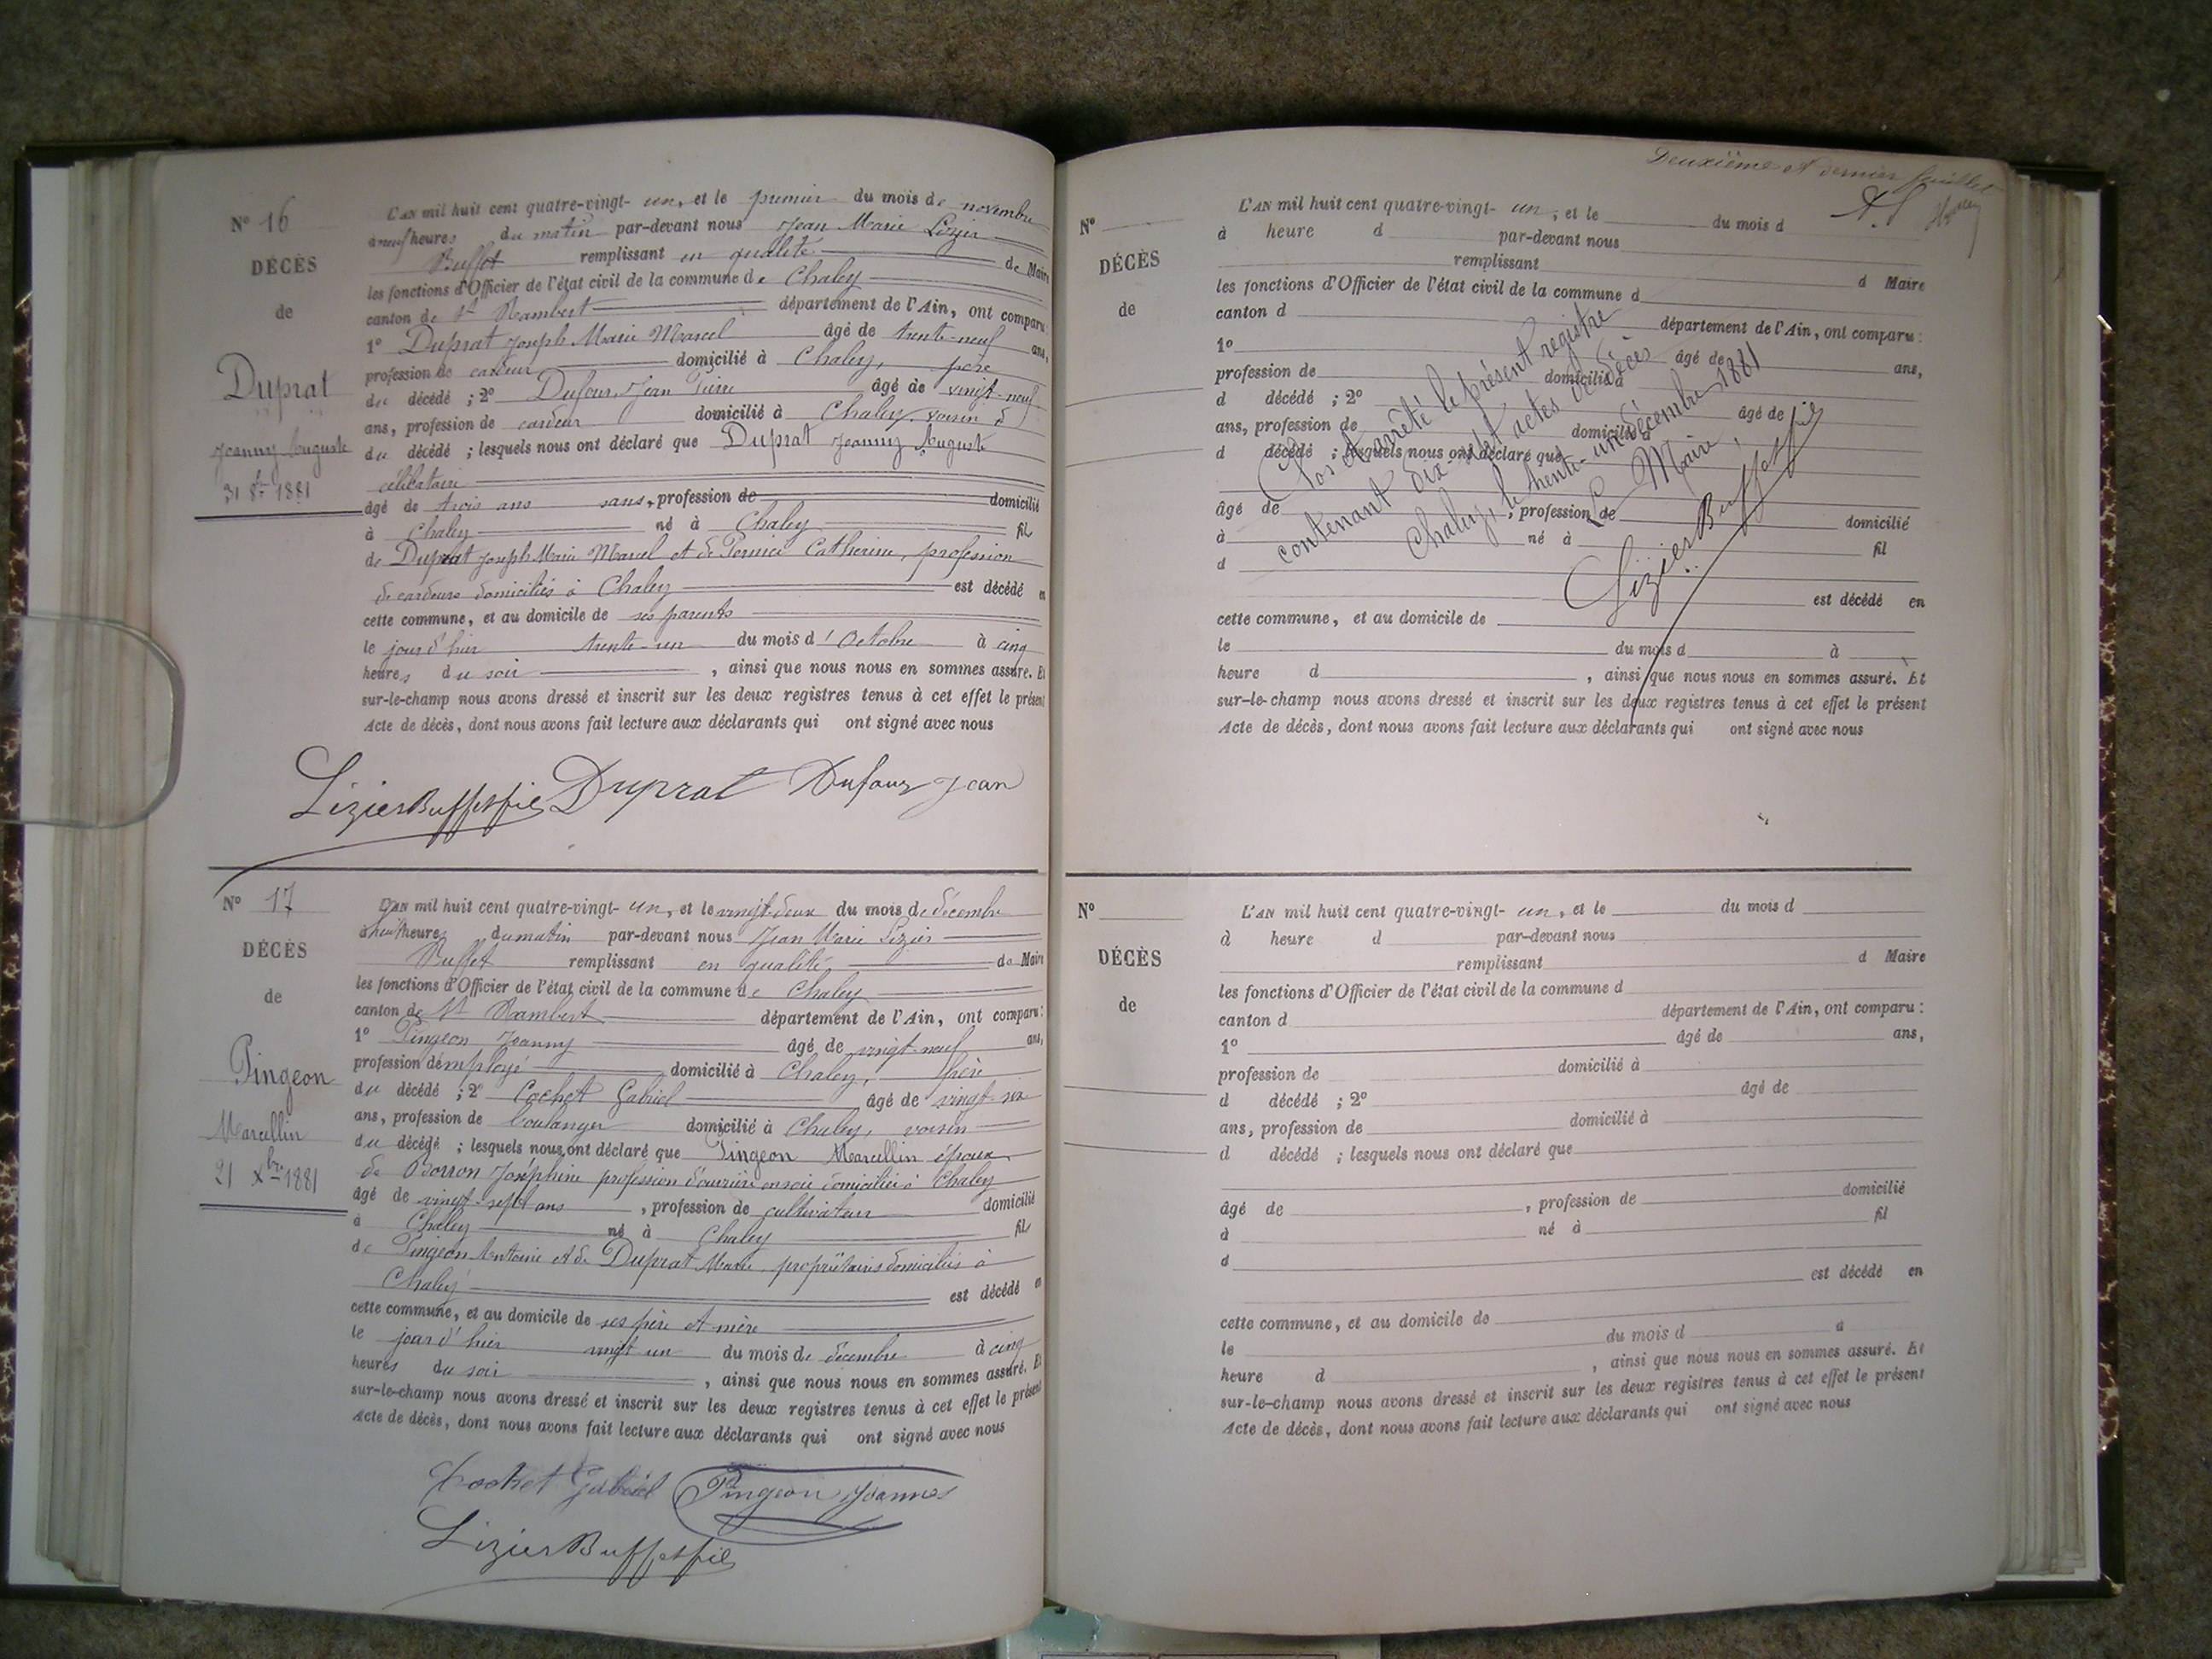 N° 16
DÉCÈS
de
Duprat
Jeanny Auguste
31 8bre 1881
L'AN mil huit cent quatre-vingt- un, et le premier du mois de novembre
à neuf heures du matin par-devant nous Jean Marie Lizier
Buffet remplissant en qualité de Maire
les fonctions d'Officier de l'état civil de la commune de Chaley
canton de St Rambert département de l'Ain, ont comparu:
1° Duprat Joseph Marie Marcel âgé de trente-neuf ans,
profession de cardeur domicilié à Chaley, père
du décédé ; 2° Dufour Jean Pierre âgé de vingt-neuf
ans, profession de cardeur domicilié à Chaley, voisin d
du décédé ; lesquels nous ont déclaré que Duprat Jeanny Auguste
célibataire
âgé de trois ans sans, profession de domicilié
à Chaley né à Chaley fil
de Duprat Joseph Marie Marcel et de Pernier Catherine, profession
de cardeurs domiciliés à Chaley est décédé en
cette commune, et au domicile de ses parents
le jour d'hier trente-un du mois d'Octobre à cinq
heures du soir , ainsi que nous nous en sommes assuré. Et
sur-le-champ nous avons dressé et inscrit sur les deux registres tenus à cet effet le présent
Acte de décès, dont nous avons fait lecture aux déclarants qui ont signé avec nous
Lizier Buffet fils Duprat Dufour Jean
N° 17
DÉCÈS
de
Pingeon
Marcellin
21 Xbre 1881
L'AN mil huit cent quatre-vingt- un, et le vingt-deux du mois de décembre
à huit heures du matin par-devant nous Jean Marie Lizier
Buffet remplissant en qualité de Maire
les fonctions d'Officier de l'état civil de la commune de Chaley
canton de St Rambert département de l'Ain, ont comparu:
1° Pingeon Joanny âgé de vingt-neuf ans,
profession d'employé domicilié à Chaley, frère
du décédé ; 2° Cochet Gabriel âgé de vingt-six
ans, profession de boulanger domicilié à Chaley, voisin
du décédé ; lesquels nous ont déclaré que Pingeon Marcellin époux
de Borron Joséphine profession d'ouvrière en soie domiciliée à Chaley
âgé de vingt-sept ans , profession de cultivateur domicilié
à Chaley né à Chaley fils
de Pingeon Antoine et de Duprat Marie, propriétaires domiciliés à
Chaley est décédé en
cette commune, et au domicile de ses père et mère
le jour d'hier vingt un du mois de décembre à cinq
heures du soir , ainsi que nous nous en sommes assuré. Et
sur-le-champ nous avons dressé et inscrit sur les deux registres tenus à cet effet le présent
Acte de décès, dont nous avons fait lecture aux déclarants qui ont signé avec nous
Cochet Gabriel Pingeon Joannes
Lizier Buffet fils
Deuxième et dernier feuillet
N°
DÉCÈS
de
L'AN mil huit cent quatre-vingt- un, et le du mois d
à heure d par-devant nous
remplissant d Maire
les fonctions d'Officier de l'état civil de la commune d
canton d département de l'Ain, ont comparu:
1° âgé de ans,
profession de domicilié à
d décédé ; 2° âgé de
ans, profession de domicilié à
d décédé ; lesquels nous ont déclaré que
âgé de , profession de domicilié
à né à fil
d
est décédé en
cette commune, et au domicile de
le du mois d à
heure d , ainsi que nous nous en sommes assuré. Et
sur-le-champ nous avons dressé et inscrit sur les deux registres tenus à cet effet le présent
Acte de décès, dont nous avons fait lecture aux déclarants qui ont signé avec nous
Clos et arrêté le présent registre
contenant dix-sept actes de décès
Chaley, le trente-un décembre 1881
Le Maire,
Lizier Buffet fils
N°
DÉCÈS
de
L'AN mil huit cent quatre-vingt- un, et le du mois d
à heure d par-devant nous
remplissant d Maire
les fonctions d'Officier de l'état civil de la commune d
canton d département de l'Ain, ont comparu :
1° âgé de ans,
profession de domicilié à
d décédé ; 2° âgé de
ans, profession de domicilié à
d décédé ; lesquels nous ont déclaré que
âgé de , profession de domicilié
à né à fil
d
est décédé en
cette commune, et au domicile de
le du mois d à
heure d , ainsi que nous nous en sommes assuré. Et
sur-le-champ nous avons dressé et inscrit sur les deux registres tenus à cet effet le présent
Acte de décès, dont nous avons fait lecture aux déclarants qui ont signé avec nous